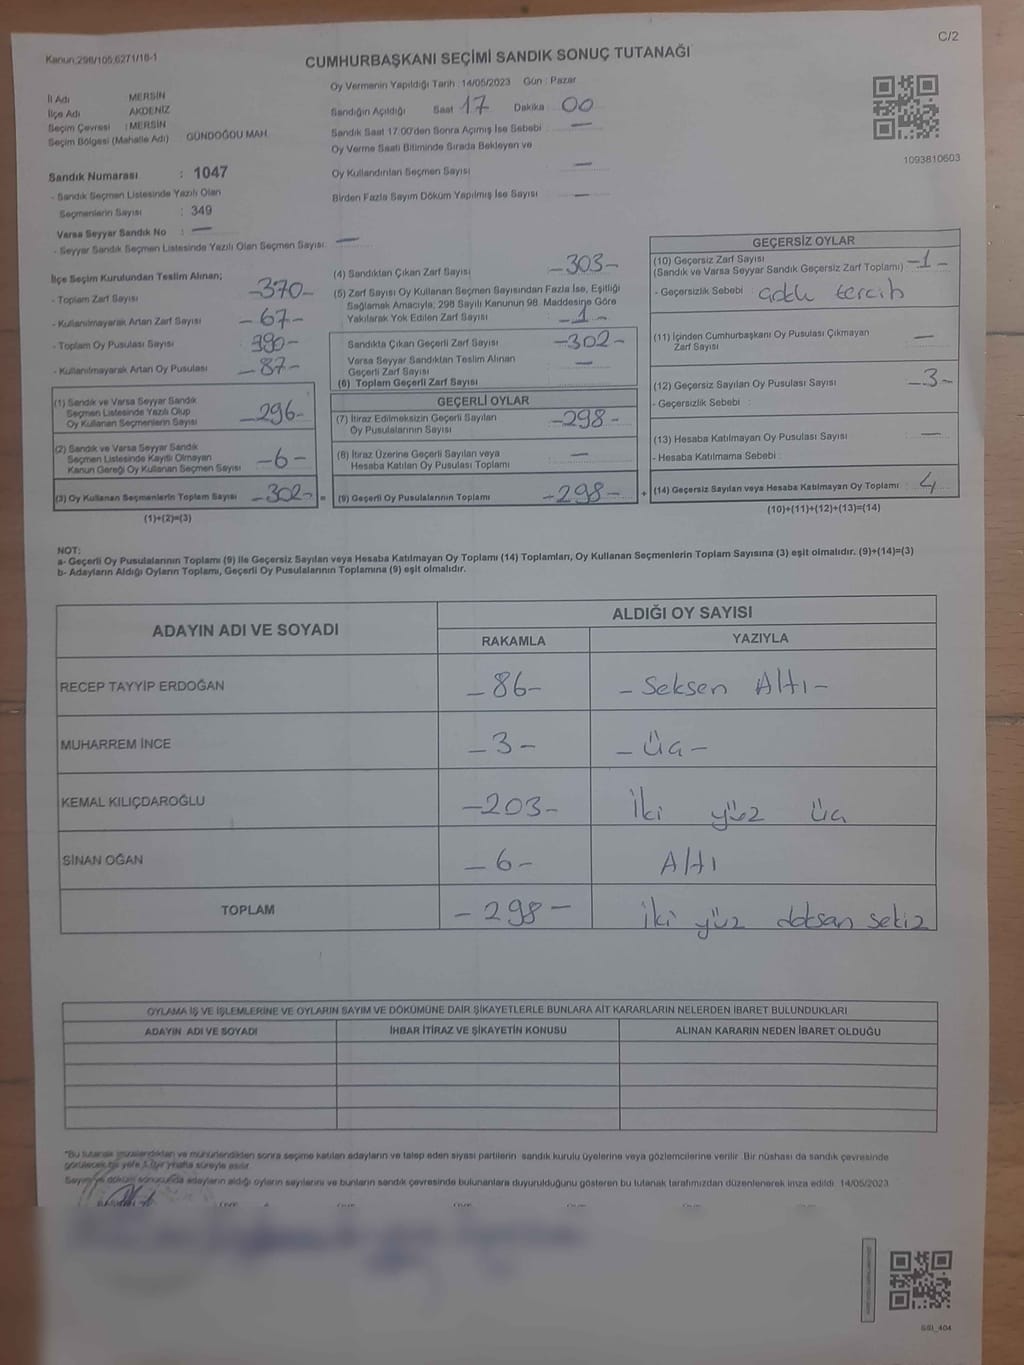 Kanun:298/105,6271/16-1
C/2
CUMHURBAŞKANI SEÇİMİ SANDIK SONUÇ TUTANAĞI
Oy Vermenin Yapıldığı Tarih : 14/05/2023 Gün : Pazar
İl Adı MERSİN
İlçe Adı AKDENİZ
Seçim Çevresi : MERSİN
Seçim Bölgesi (Mahalle Adı) GÜNDOĞDU MAH.
Sandığın Açıldığı Saat 17 Dakika 00
Sandık Saat 17:00'den Sonra Açımış İse Sebebi : —
Oy Verme Saati Bitiminde Sırada Bekleyen ve
Oy Kullandırılan Seçmen Sayısı —
Birden Fazla Sayım Döküm Yapılmış İse Sayısı —
1093810603
Sandık Numarası : 1047
- Sandık Seçmen Listesinde Yazılı Olan
Seçmenlerin Sayısı : 349
Varsa Seyyar Sandık No : —
- Seyyar Sandık Seçmen Listesinde Yazılı Olan Seçmen Sayısı: —
İlçe Seçim Kurulundan Teslim Alınan;
- Toplam Zarf Sayısı -370-
- Kullanılmayarak Artan Zarf Sayısı -67-
- Toplam Oy Pusulası Sayısı 390-
- Kullanılmayarak Artan Oy Pusulası -87-
(1) Sandık ve Varsa Seyyar Sandık
Seçmen Listesinde Yazılı Olup
Oy Kullanan Seçmenlerin Sayısı -296-
(2) Sandık ve Varsa Seyyar Sandık
Seçmen Listesinde Kayıtlı Olmayan
Kanun Gereği Oy Kullanan Seçmen Sayısı -6-
(3) Oy Kullanan Seçmenlerin Toplam Sayısı -302- =
(1)+(2)=(3)
(4) Sandıktan Çıkan Zarf Sayısı -303-
(5) Zarf Sayısı Oy Kullanan Seçmen Sayısından Fazla İse, Eşitliği
Sağlamak Amacıyla; 298 Sayılı Kanunun 98. Maddesine Göre
Yakılarak Yok Edilen Zarf Sayısı -1-
Sandıkta Çıkan Geçerli Zarf Sayısı -302-
Varsa Seyyar Sandıktan Teslim Alınan
Geçerli Zarf Sayısı —
(6) Toplam Geçerli Zarf Sayısı
GEÇERLİ OYLAR
(7) İtiraz Edilmeksizin Geçerli Sayılan
Oy Pusulalarının Sayısı -298-
(8) İtiraz Üzerine Geçerli Sayılan veya
Hesaba Katılan Oy Pusulası Toplamı —
(9) Geçerli Oy Pusulalarının Toplamı -298- +
GEÇERSİZ OYLAR
(10) Geçersiz Zarf Sayısı
(Sandık ve Varsa Seyyar Sandık Geçersiz Zarf Toplamı) -1-
- Geçersizlik Sebebi : tercih
(11) İçinden Cumhurbaşkanı Oy Pusulası Çıkmayan
Zarf Sayısı —
(12) Geçersiz Sayılan Oy Pusulası Sayısı -3-
- Geçersizlik Sebebi :
(13) Hesaba Katılmayan Oy Pusulası Sayısı —
- Hesaba Katılmama Sebebi :
(14) Geçersiz Sayılan veya Hesaba Katılmayan Oy Toplamı : 4
(10)+(11)+(12)+(13)=(14)
NOT:
a- Geçerli Oy Pusulalarının Toplamı (9) ile Geçersiz Sayılan veya Hesaba Katılmayan Oy Toplamı (14) Toplamları, Oy Kullanan Seçmenlerin Toplam Sayısına (3) eşit olmalıdır. (9)+(14)=(3)
b- Adayların Aldığı Oyların Toplamı, Geçerli Oy Pusulalarının Toplamına (9) eşit olmalıdır.
ADAYIN ADI VE SOYADI
ALDIĞI OY SAYISI
RAKAMLA YAZIYLA
RECEP TAYYİP ERDOĞAN -86- - Seksen Altı -
MUHARREM İNCE -3- - Üç -
KEMAL KILIÇDAROĞLU -203- İki yüz üç
SİNAN OĞAN -6- Altı
TOPLAM -298- İki yüz doksan sekiz
OYLAMA İŞ VE İŞLEMLERİNE VE OYLARIN SAYIM VE DÖKÜMÜNE DAİR ŞİKAYETLERLE BUNLARA AİT KARARLARIN NELERDEN İBARET BULUNDUKLARI
ADAYIN ADI VE SOYADI İHBAR İTİRAZ VE ŞİKAYETİN KONUSU ALINAN KARARIN NEDEN İBARET OLDUĞU
*Bu tutanak imzalandıktan ve mühürlendikten sonra seçime katılan adayların ve talep eden siyasi partilerin sandık kurulu üyelerine veya gözlemcilerine verilir .Bir nüshası da sandık çevresinde
görülecek bir yere 1 (bir) hafta süreyle asılır.
Sayım ve döküm sonucunda adayların aldığı oyların sayılarını ve bunların sandık çevresinde bulunanlara duyurulduğunu gösteren bu tutanak tarafımızdan düzenlenerek imza edildi. 14/05/2023